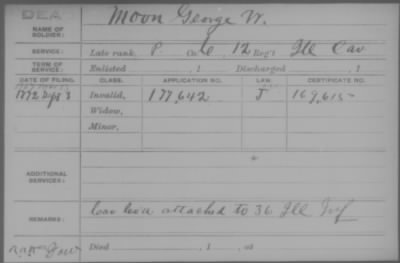 DEAD
NAME OF SOLDIER: Moon George W.
SERVICE: Late rank, P Co. 12 Reg't Ill Cav
TERM OF SERVICE: Enlisted , 1 Discharged , 1
DATE OF FILING. CLASS. APPLICATION NO. LAW. CERTIFICATE NO.
1872 Invalid, 177,642 169,615
Widow,
Minor,
ADDITIONAL SERVICES:
REMARKS: attached to 36 Ill Inf
Died , 1 , at